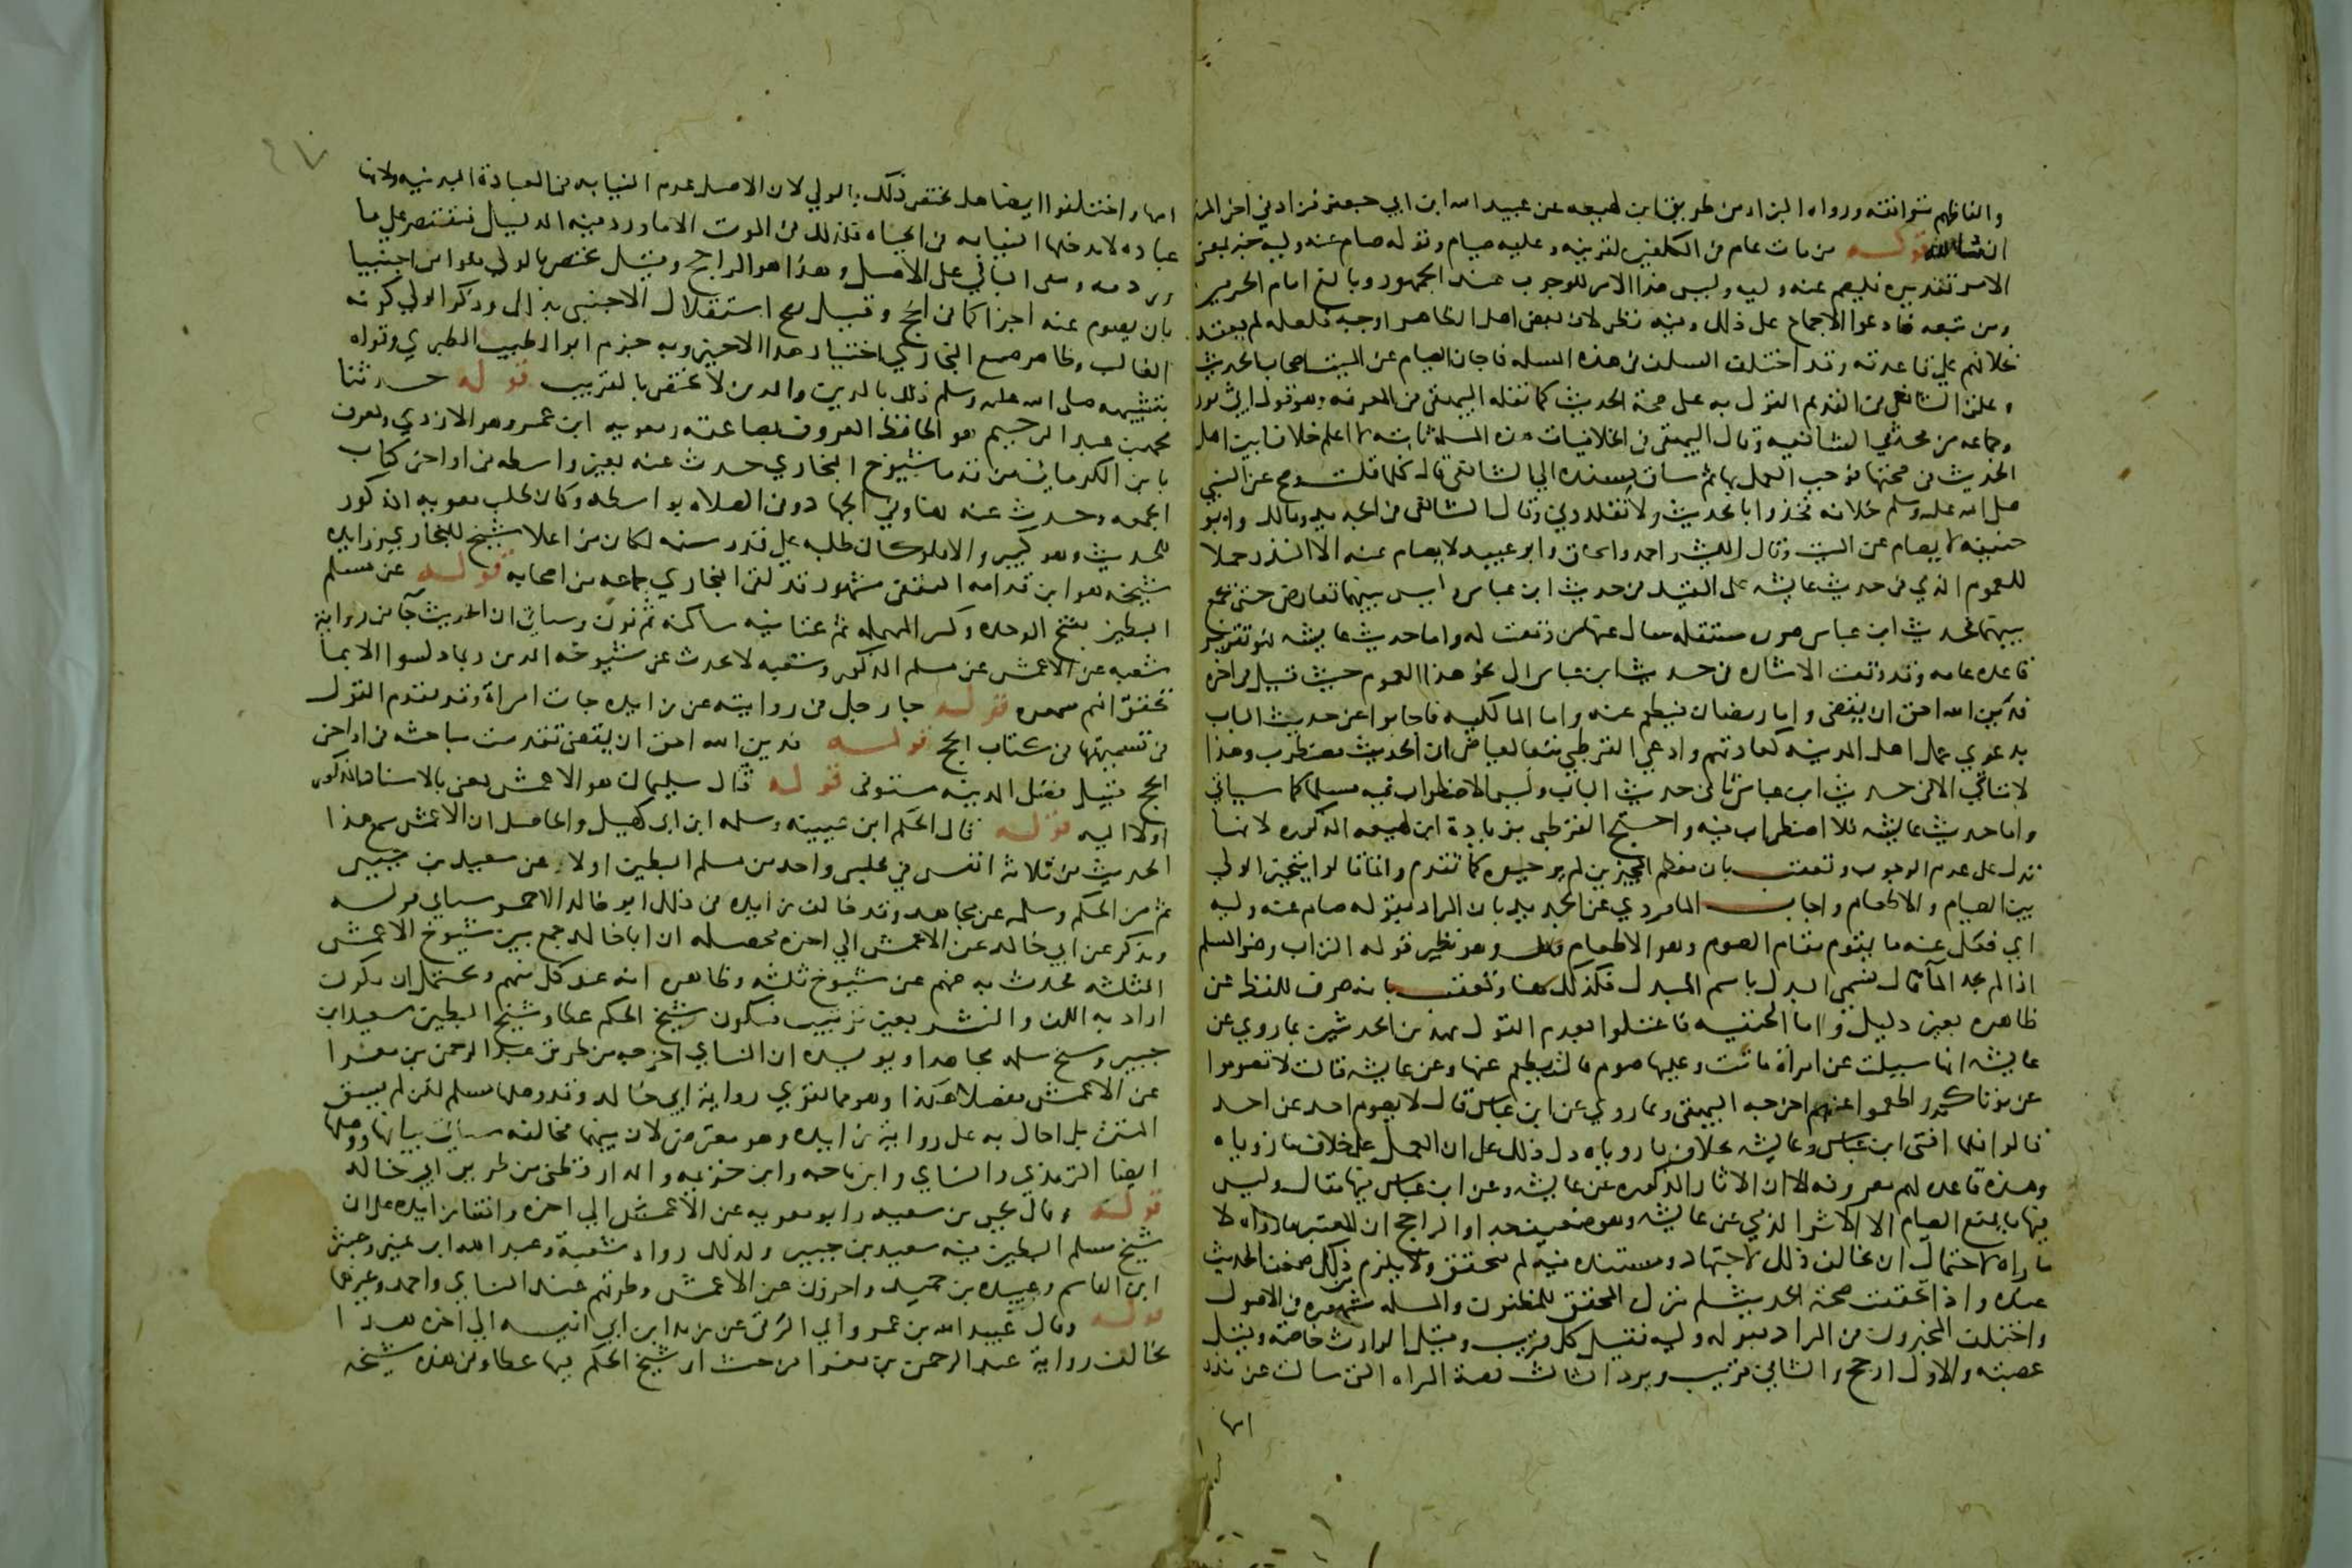 والفاظهم متوافقه ورواه البزار من طريق ابن لهيعه عن عبيد الله ابن ابي جعفر فزاد في اخر المتن
ان شا الله قوله من مات عام في المكلفين لقرينه وعليه صيام وقوله صام عنه وليه خبر بمعنى
الامر تقديره فليصم عنه وليه وليس هذا الامر للوجوب عند الجمهور وبالغ امام الحرمين
ومن تبعه فادعوا الاجماع على ذلك وفيه نظر لان بعض اهل الظاهر اوجبه فلعله لم يعتد
بخلافهم على قاعدته وقد اختلف السلف في هذه المسله فاجاز الصيام عن الميت اصحاب الحديث
وعلق الشافعي في القديم القول به على صحة الحديث كما نقله البيهقي في المعرفه وهو قول ابي ثور
وجماعه من محدثي الشافعيه وقال البيهقي في الخلافيات هذه المسله ثابته لا اعلم خلافا بين اهل
الحديث في صحتها فوجب العمل بها ثم ساق بسنده الى الشافعي قال كلما قلت وصح عن النبي
صلى الله عليه وسلم خلافه فخذوا بالحديث ولا تقلدوني وقال الشافعي في الجديد ومالك وابو
حنيفه لا يصام عن الميت وقال الليث واحمد واسحاق وابو عبيد لا يصام عنه الا النذر حملا
للعموم الذي في حديث عايشه على المقيد في حديث ابن عباس وليس بينهما تعارض حتى يجمع
بينهما فحديث ابن عباس صوره مستقله سال عنها من وقعت له واما حديث عايشه فهو تقرير
قاعده عامه وقد وقعت الاشاره في حديث ابن عباس الى نحو هذا العموم حيث قيل في اخره
فدين الله احق ان يقضى واما رمضان فيطعم عنه واما المالكيه فاجابوا عن حديث الباب
بدعوى عمل اهل المدينه كعادتهم وادعى القرطبي تبعا لعياض ان الحديث مضطرب وهذا
لا يتاتى الا في حديث ابن عباس ثاني حديث الباب وليس الاضطراب فيه مسلما كما سياتي
واما حديث عايشه فلا اضطراب فيه واحتج القرطبي بزيادة ابن لهيعه المذكوره لانها
تدل على عدم الوجوب وتعقب بان معظم المجيزين لم يوجبوه كما تقدم وانما قالوا يتخير الولي
بين الصيام والاطعام واجاب الماوردي عن الجديد بان المراد بقوله صام عنه وليه
اي فعل عنه ما يقوم مقام الصوم وهو الاطعام قال وهو نظير قوله التراب وضو المسلم
اذا لم يجد الما قال فسمى البدل باسم المبدل فكذلك هنا وتعقب بانه صرف للفظ عن
ظاهره بغير دليل واما الحنفيه فاعتلوا بعدم القول بهذين الحديثين بما روي عن
عايشه انها سيلت عن امراة ماتت وعليها صوم قالت يطعم عنها وعن عايشه قالت لا تصوموا
عن موتاكم واطعموا عنهم اخرجه البيهقي وبما روي عن ابن عباس قال لا يصوم احد عن احد
قالوا فلما افتى ابن عباس وعايشه بخلاف ما روياه دل ذلك على ان العمل على خلاف ما روياه
وهذه قاعده لهم معروفه الا ان الاثار المذكوره عن عايشه وعن ابن عباس فيها مقال وليس
فيها ما يمنع الصيام الا الاثر الذي عن عايشه وهو ضعيف جدا والراجح ان المعتبر ما رواه لا
ما راه لاحتمال ان يخالف ذلك لاجتهاد ومستنده فيه لم يتحقق ولا يلزم من ذلك ضعف الحديث
عنده واذا تحققت صحة الحديث لم يترك المحقق للمظنون والمسله مشهوره في الاصول
واختلف المجيزون في المراد بقوله وليه فقيل كل قريب وقيل الوارث خاصه وقيل
عصبته والاول ارجح والثاني قريب ويرد الثالث قصة المراه التي سالت عن نذر
امها
امها واختلفوا ايضا هل يختص ذلك بالولي لان الاصل عدم النيابه في العبادة البدنيه ولانها
عباده لا يدخلها النيابه في الحياه فكذلك في الموت الا ما ورد فيه الدليل فيقتصر على ما
ورد فيه ويبقى الباقي على الاصل وهذا هو الراجح وقيل يختص بالولي فلو امر اجنبيا
بان يصوم عنه اجزا كما في الحج وقيل يصح استقلال الاجنبي بذلك وذكر الولي لكونه
الغالب وظاهر صنيع البخاري اختيار هذا الاخير وبه جزم ابو الطيب الطبري وقواه
بتشبيهه صلى الله عليه وسلم ذلك بالدين والدين لا يختص بالقريب قوله حدثنا
محمد بن عبد الرحيم هو الحافظ المعروف بصاعقه ومعويه ابن عمرو هو الازدي ويعرف
بابن الكرماني من قدما شيوخ البخاري حدث عنه بغير واسطه في اواخر كتاب
الجمعه وحدث عنه هنا وفي الجهاد وفي الصلاه بواسطه وكان طلب معويه المذكور
للحديث وهو كبير والا فلو كان طلبه على قدر سنه لكان من اعلا شيخ للبخاري وزايده
شيخه هو ابن قدامه الثقفي مشهور قد لقي البخاري جماعه من اصحابه قوله عن مسلم
البطين بفتح الموحده وكسر المهمله ثم تحتانيه ساكنه ثم نون وسياتي ان الحديث جا من رواية
شعبه عن الاعمش عن مسلم المذكور وشعبه لا يحدث عن شيوخه الذين ربما دلسوا الا بما
تحقق انهم سمعوه قوله جا رجل في رواية غير زايده جات امراة وقد تقدم القول
في تسميتها في كتاب الحج قوله فدين الله احق ان يقضى تقدمت مباحثه في اواخر
الحج قبيل فضل المدينه مستوفى قوله قال سليمان هو الاعمش يعني بالاسناد المذكور
اولا اليه قوله قال الحكم ابن عيينه وسلمه ابن ابي كهيل والحاصل ان الاعمش سمع هذا
الحديث من ثلاثة انفس في مجلس واحد من مسلم البطين اولا عن سعيد بن جبير
ثم من الحكم وسلمه عن مجاهد وقد خالف زايده في ذلك ابو خالد الاحمر سياتي قوله
ويذكر عن ابي خالد عن الاعمش الى اخره محصله ان ابا خالد جمع بين شيوخ الاعمش
الثلثه فحدث به عنهم عن شيوخ ثلثه وظاهره انه عند كل منهم ويحتمل ان يكون
اراد به اللف والنشر بغير ترتيب فيكون شيخ الحكم عطا وشيخ البطين سعيد ابن
جبير وشيخ سلمه مجاهدا ويويده ان النساي اخرجه من طريق عبد الرحمن بن مغرا
عن الاعمش مفصلا هكذا وهو مما يقوي رواية ابي خالد وقد وصلها مسلم لكن لم يسق
المتن بل احال به على رواية زايده وهو معترض لان بينهما مخالفه سياتي بيانها ووصلها
ايضا الترمذي والنساي وابن ماجه وابن خزيمه والدارقطني من طريق ابي خالد
قوله وقال يحيى بن سعيد وابو معويه عن الاعمش الى اخره وافقا زايده على ان
شيخ مسلم البطين فيه سعيد بن جبير وكذلك رواه شعبة وعبد الله ابن نمير وعبثر
ابن القاسم وعبيده بن حميد واخرون عن الاعمش وطرقهم عند النساي واحمد وغيرهما
قوله وقال عبيد الله بن عمرو اي الرقي عن زيد ابن ابي انيسه الى اخره هذا
يخالف رواية عبد الرحمن بن مغرا من حيث ان شيخ الحكم فيها عطا وفي هذه شيخه